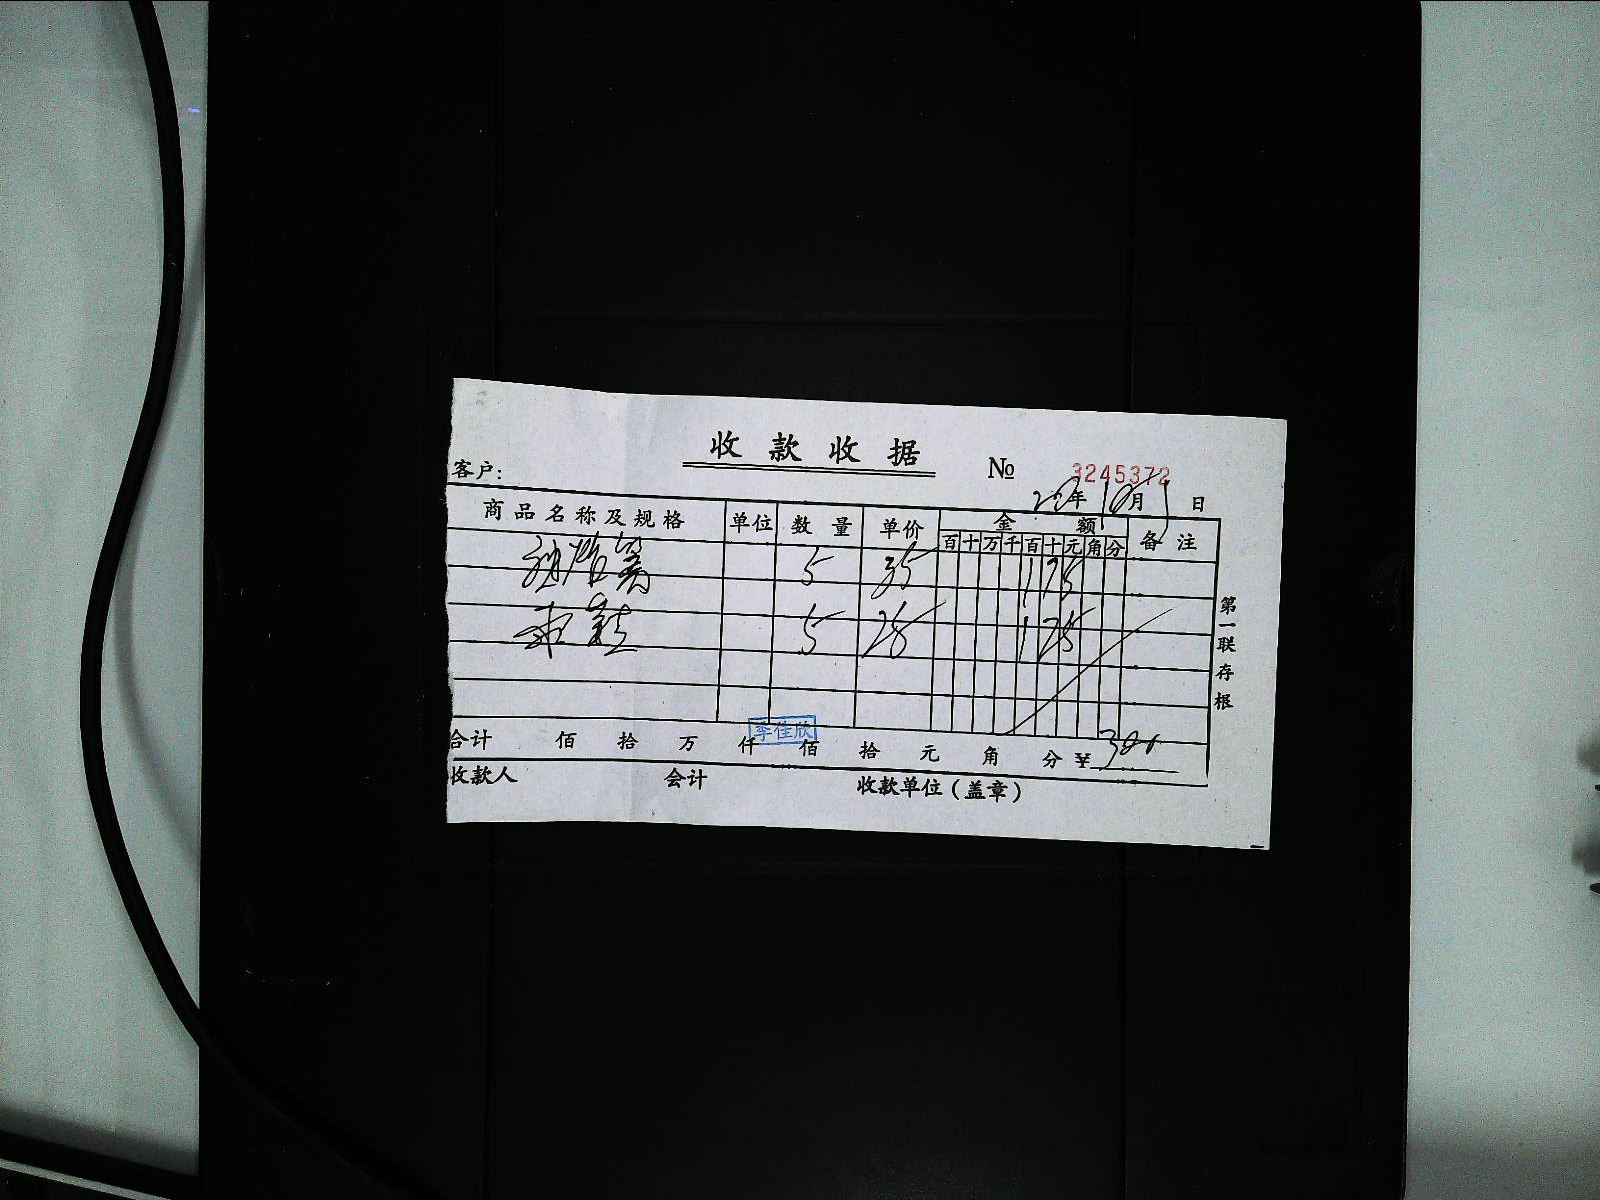 收款收据
客户: № 3245372
年 10月1日
商品名称及规格 单位 数量 单价 金额 备注
百十万千百十元角分
5 35 175
5 25 125
李佳欣
合计 佰 拾 万 仟 佰 拾 元 角 分 ¥ 300
收款人 会计 收款单位(盖章)
第一联存根